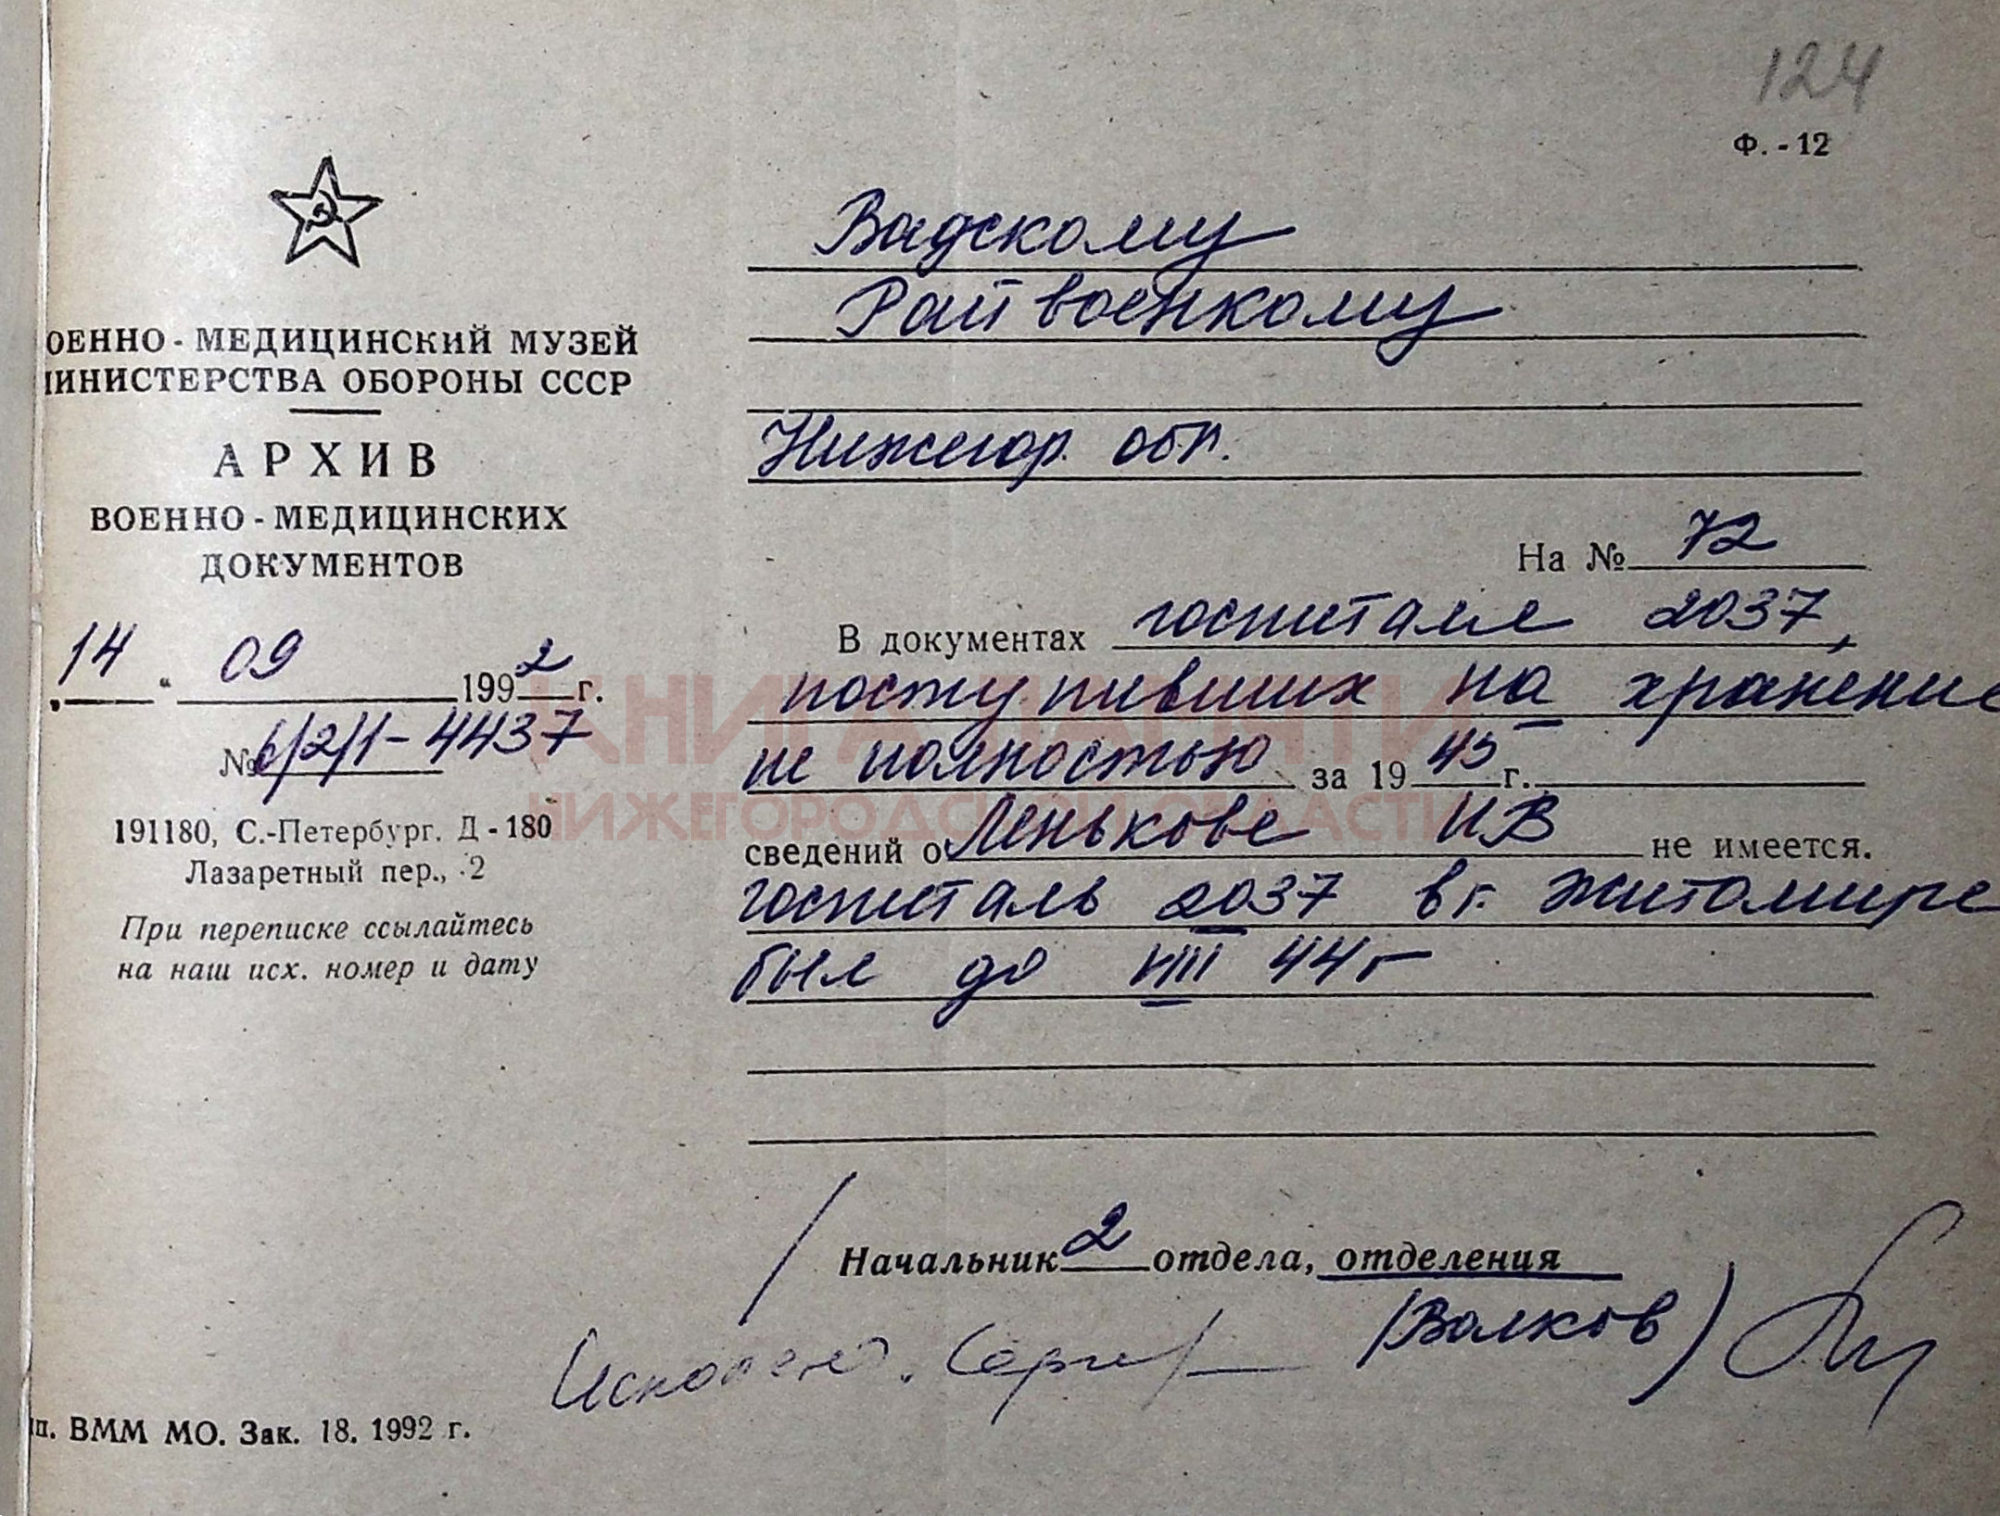 124
Ф. - 12
ОЕННО - МЕДИЦИНСКИЙ МУЗЕЙ
ИНИСТЕРСТВА ОБОРОНЫ СССР
АРХИВ
ВОЕННО - МЕДИЦИНСКИХ
ДОКУМЕНТОВ
14 " 09 1992 г.
№ 6/2/1-4437
191180, С.-Петербург. Д - 180
Лазаретный пер., 2
При переписке ссылайтесь
на наш исх. номер и дату
Вадскому
Райвоенкому
Нижегор. обл.
На № 72
В документах госпиталя 2037,
поступивших на хранение
не полностью за 1945 г.
сведений о Ленькове И В не имеется.
госпиталь 2037 в г. Житомире
был до VIII 44 г
Начальник 2 отдела, отделения
(Волков)
п. ВММ МО. Зак. 18. 1992 г.
КНИГА ПАМЯТИ
НИЖЕГОРОДСКОЙ ОБЛАСТИ